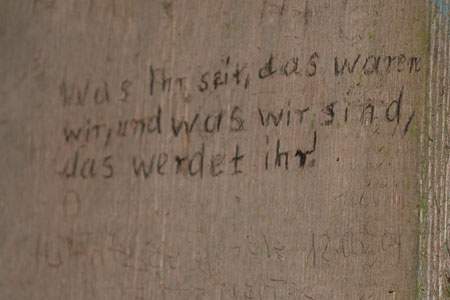 Was Ihr seit, das waren
wir, und was wir sind,
das werdet ihr!